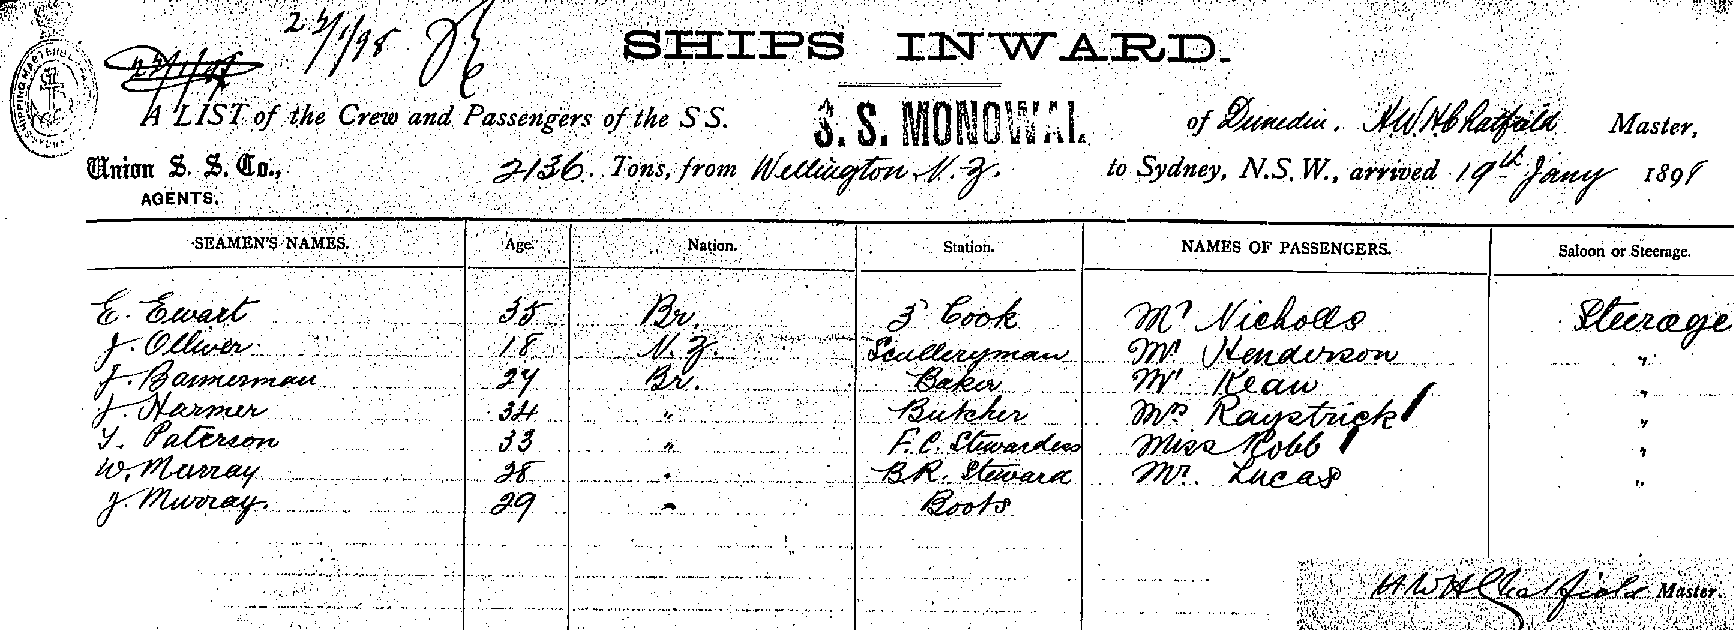 22/1/98
SHIPS INWARD.
A LIST of the Crew and Passengers of the SS. S. S. MONOWAI. of Dunedin, H.W.H. Chatfield Master,
Union S. S. Co., AGENTS. 2136. Tons, from Wellington N.Z. to Sydney, N.S.W., arrived 19th Jany 1898
SEAMEN'S NAMES. Age. Nation. Station. NAMES OF PASSENGERS. Saloon or Steerage.
E. Ewart 35 Br. 3 Cook Mr Nicholls Steerage
J. Olliver 18 N.Z. Sculleryman Mr Henderson "
J. Bannerman 27 Br. Baker Mr Kean "
J. Harmer 34 " Butcher Mrs Raystrick "
T. Paterson 33 " F.C. Stewardess Miss Robb "
W. Murray 28 " B.R. Steward Mr. Lucas "
J. Murray. 29 " Boots
H W H Chatfield Master.